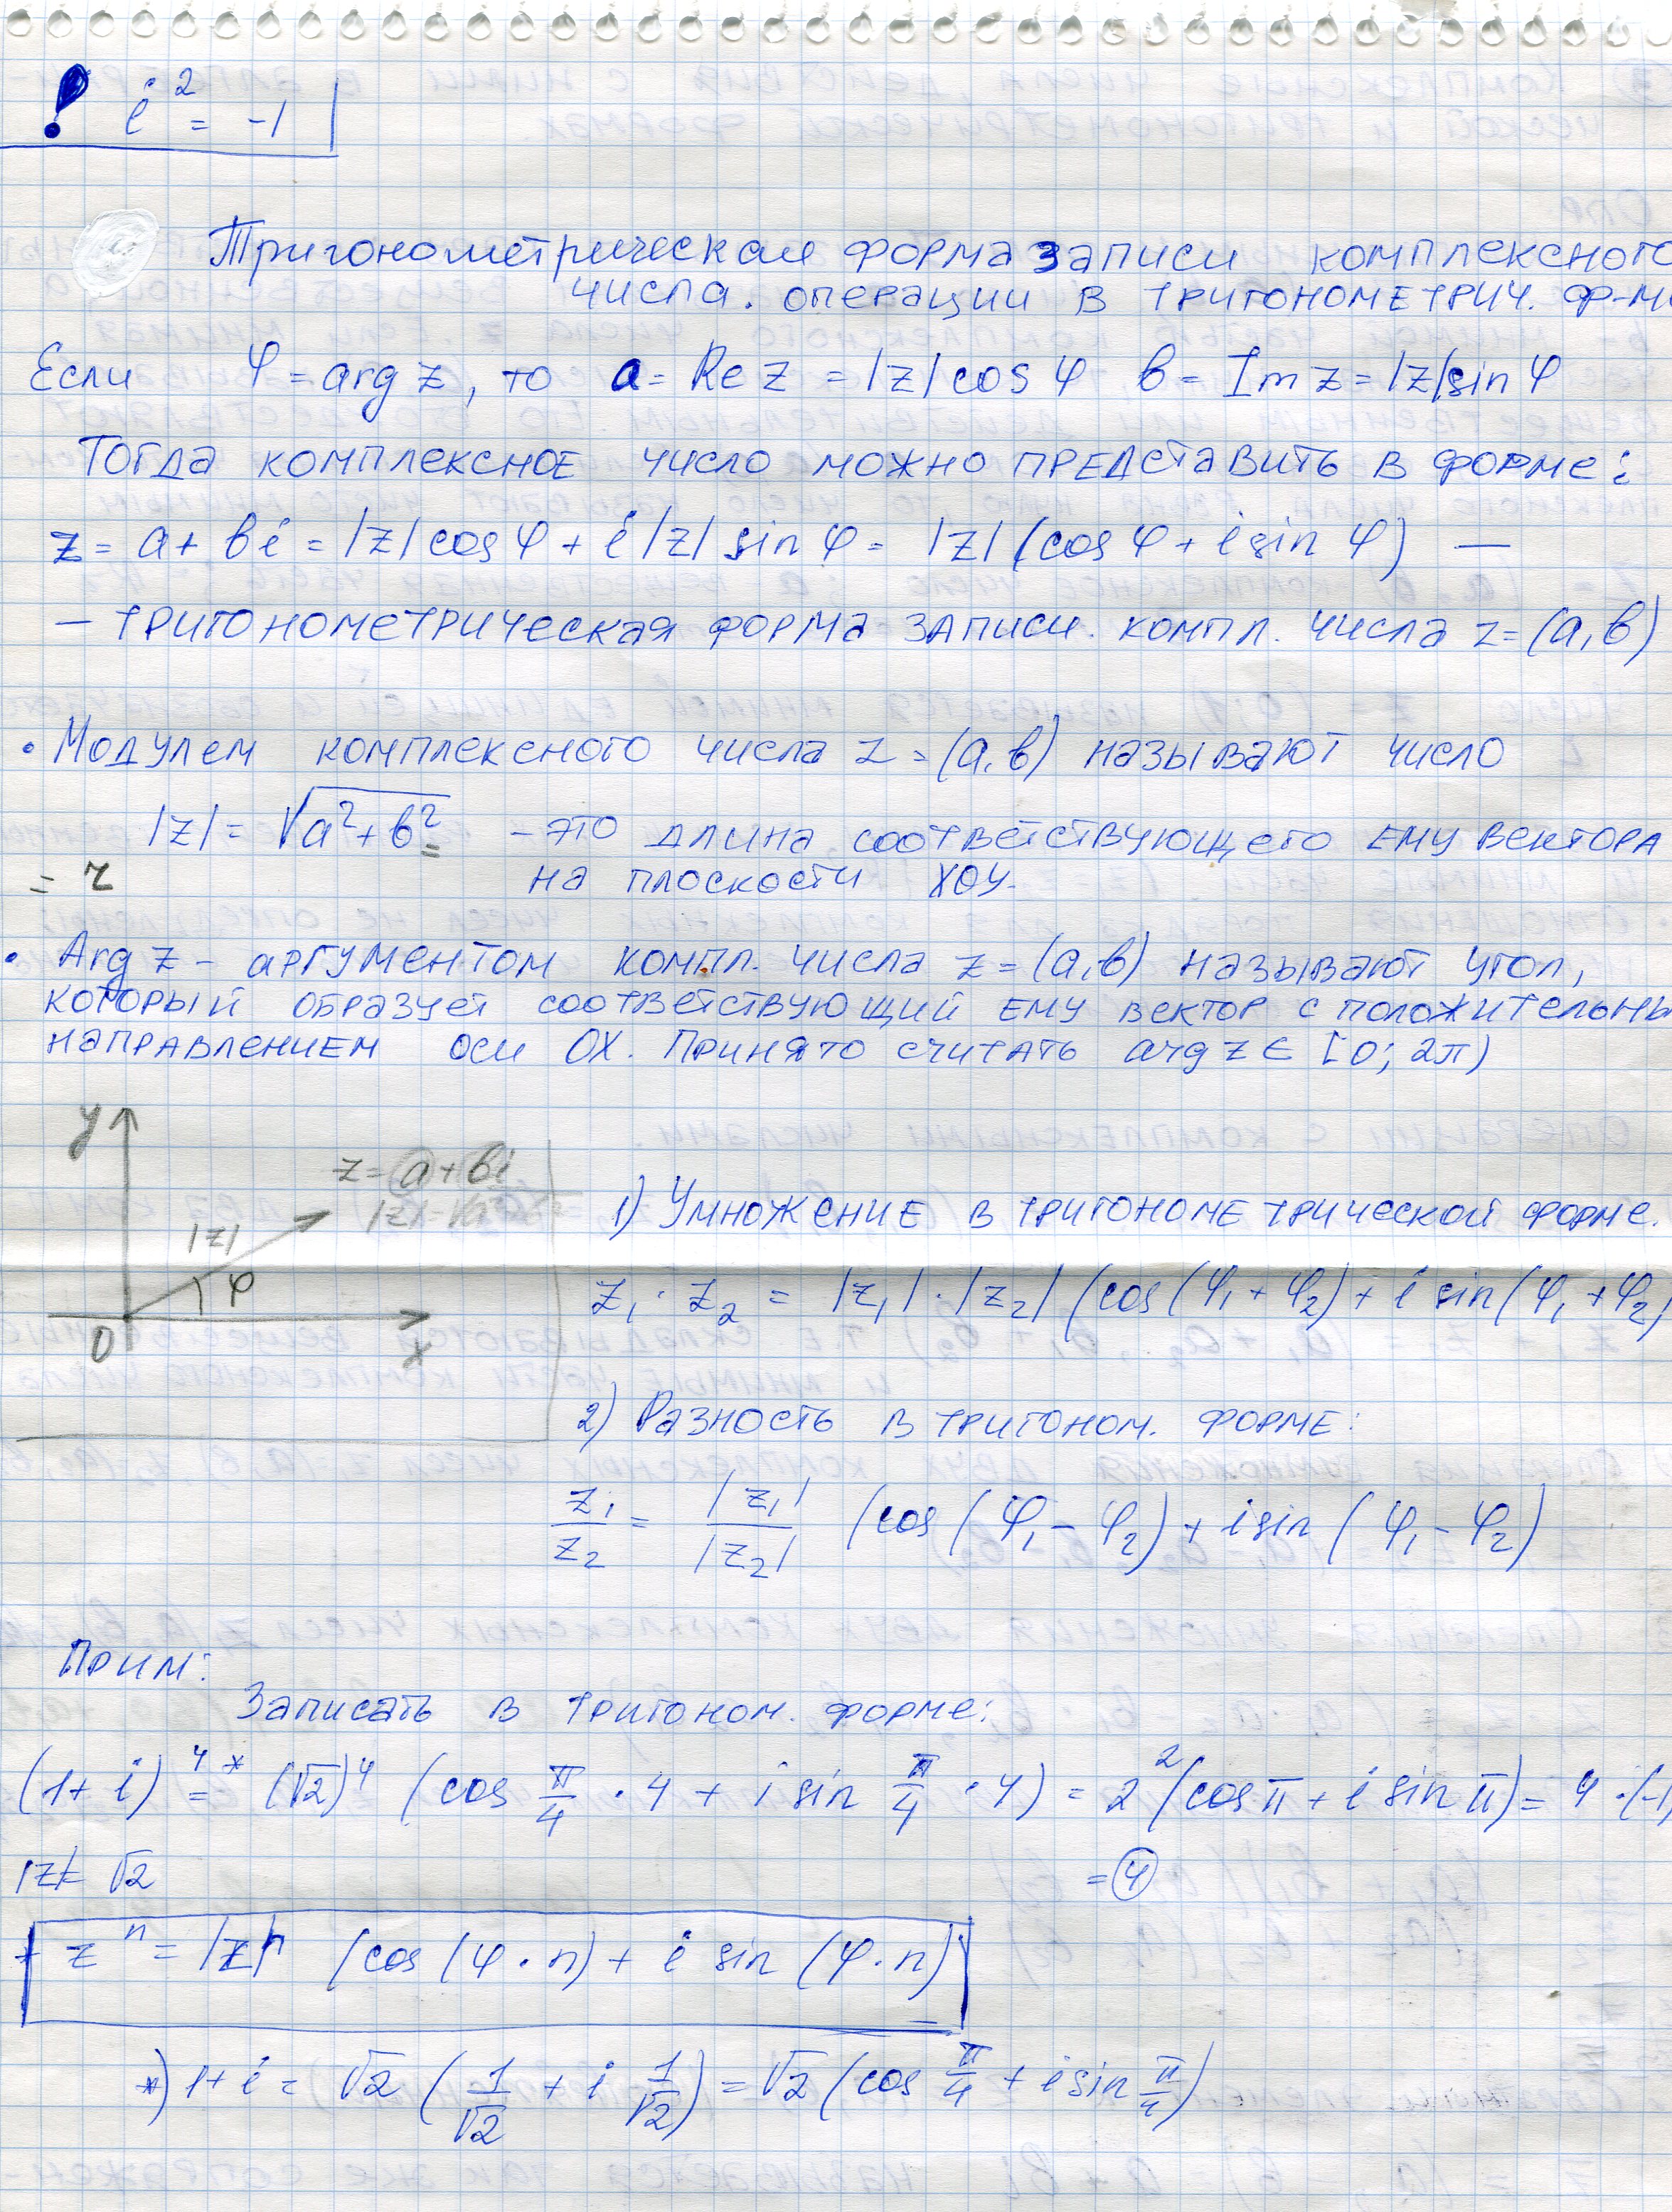 ! i² = -1
Тригонометрическая форма записи комплексного
числа. операции в тригонометрич. ф-ме
Если φ = arg z, то a = Re z = |z| cos φ в = Im z = |z| sin φ
Тогда комплексное число можно представить в форме:
z = a + вi = |z| cos φ + i |z| sin φ = |z| (cos φ + i sin φ) —
— тригонометрическая форма записи. компл. числа z = (a, в)
• Модулем комплексного числа z = (a, в) называют число
|z| = √(a² + в²) - это длина соответствующего ему вектора
= r на плоскости XOY.
• Arg z - аргументом компл. числа z = (a, в) называют угол,
который образует соответствующий ему вектор с положительны
направлением оси OX. Принято считать arg z ∈ [0; 2π)
y
z = a + вi
|z|
φ
0 x
1) Умножение в тригонометрической форме.
z₁ · z₂ = |z₁| · |z₂| (cos (φ₁ + φ₂) + i sin (φ₁ + φ₂)
2) Разность в тригоном. форме:
z₁/z₂ = |z₁|/|z₂| (cos (φ₁ - φ₂) + i sin (φ₁ - φ₂)
Прим:
Записать в тригоном. форме:
(1 + i)⁴ =* (√2)⁴ (cos π/4 · 4 + i sin π/4 · 4) = 2² (cos π + i sin π) = 4 · (-1)
|z| = √2 = 4
* zⁿ = |z|ⁿ (cos (φ · n) + i sin (φ · n)
*) 1 + i = √2 (1/√2 + i 1/√2) = √2 (cos π/4 + i sin π/4)